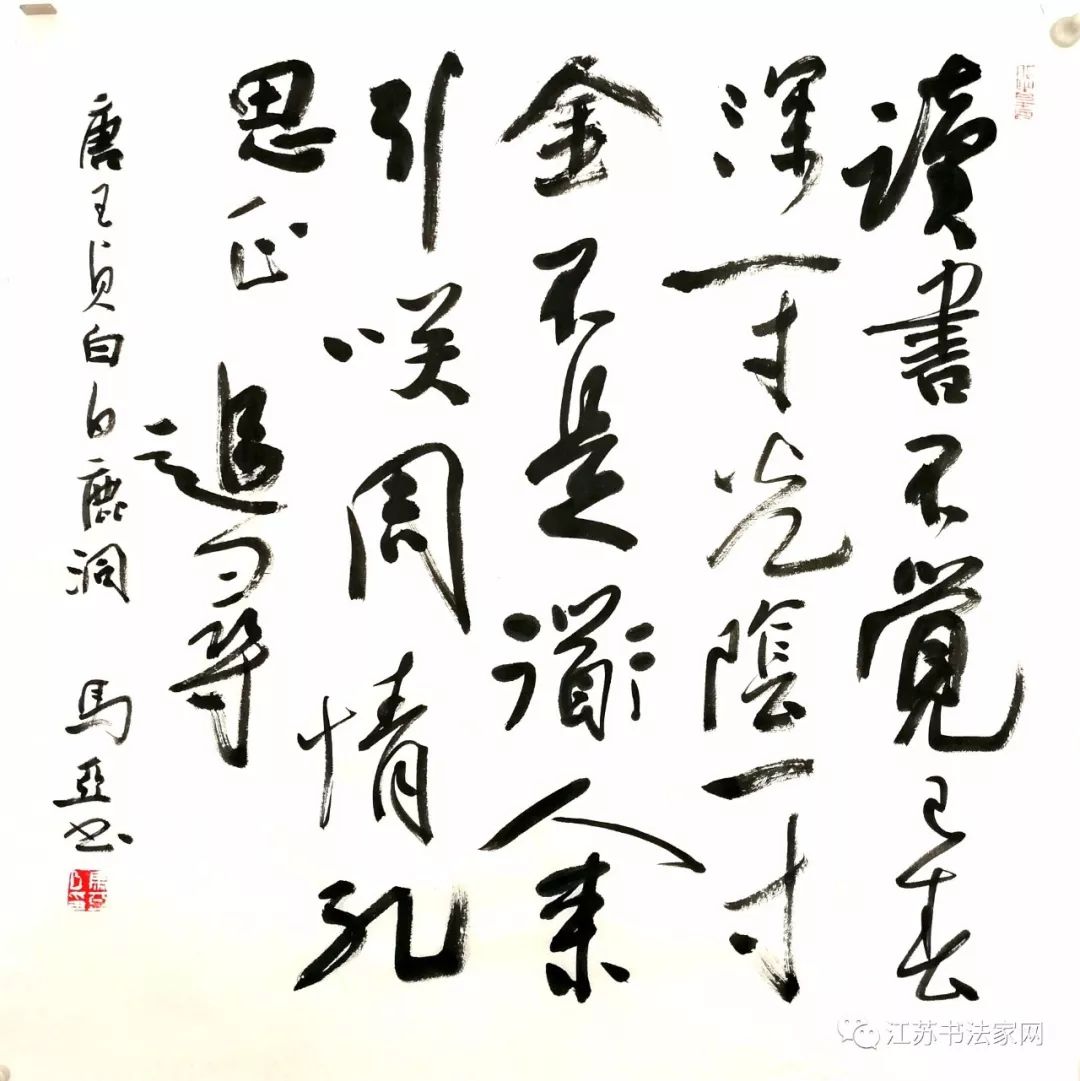 讀書不覺已春
深一寸光陰一寸
金不是道人來
引咲周情孔
思正追尋
唐王貞白白鹿洞 馬亞書
江苏书法家网